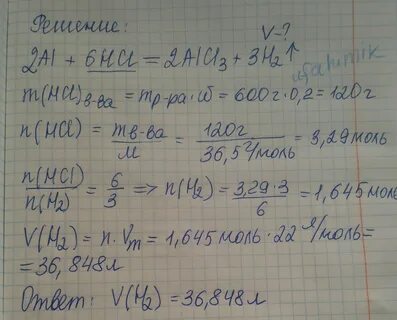 Решение:
V-?
2Al + 6HCl = 2AlCl₃ + 3H₂↑
ufahimik
m(HCl)в-ва = mр-ра·ω = 600г·0,2 = 120г
n(HCl) = mв-ва/M = 120г/36,5г/моль = 3,29моль
n(HCl)/n(H₂) = 6/3 => n(H₂) = 3,29·3/6 = 1,645моль
V(H₂) = n·Vm = 1,645моль·22л/моль=
=36,848л
Ответ: V(H₂) = 36,848л